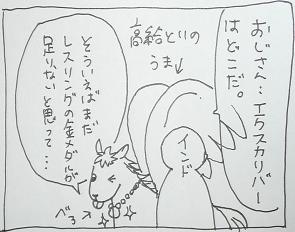 おじさん…エクスカリバー
はどこだ。
高給とりの
うま
インド
そういえばまだ
レスリングの金メダルが
足りないと思って…
べろ